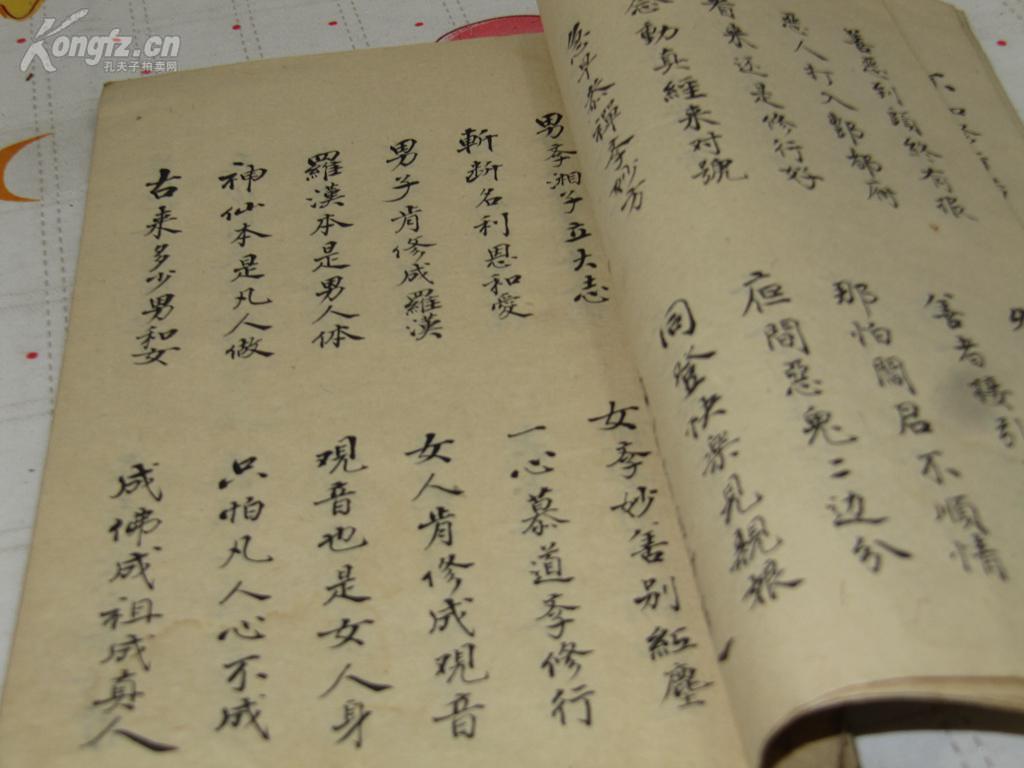 Kongfz.cn
孔夫子拍卖网
善惡到頭終有報
善者接引
惡人打入酆都府
那怕閻君不順情
看来还是修行好
間惡鬼二边分
動真經来对號
同登快樂見親娘
早参禅斈妙方
男斈湘子立大志
女斈妙善别紅塵
斬断名利恩和愛
一心慕道斈修行
男子肯修成羅漢
女人肯修成观音
羅漢本是男人体
观音也是女人身
神仙本是凡人做
只怕凡人心不成
古来多少男和女
成佛成祖成真人